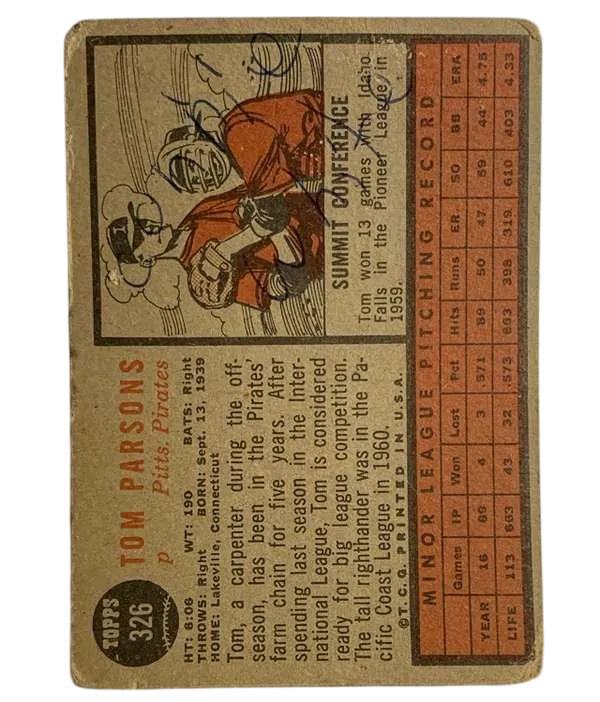 TOPPS
326
TOM PARSONS
P Pitts. Pirates
HT: 6:06 WT: 190 BATS: Right
THROWS: Right BORN: Sept. 13, 1939
HOME: Lakeville, Connecticut
Tom, a carpenter during the off-
season, has been in the Pirates'
farm chain for five years. After
spending last season in the Inter-
national League, Tom is considered
ready for big league competition.
The tall righthander was in the Pa-
cific Coast League in 1960.
©T.C.G. PRINTED IN U.S.A.
SUMMIT CONFERENCE
Tom won 13 games with Idaho
Falls in the Pioneer League in
1959.
MINOR LEAGUE PITCHING RECORD
Games IP Won Lost Pct Hits Runs ER. SO BB ERA
YEAR 16 69 4 3 .571 89 50 47 59 44 4.75
LIFE 113 663 43 32 .573 693 398 319 610 403 4.33